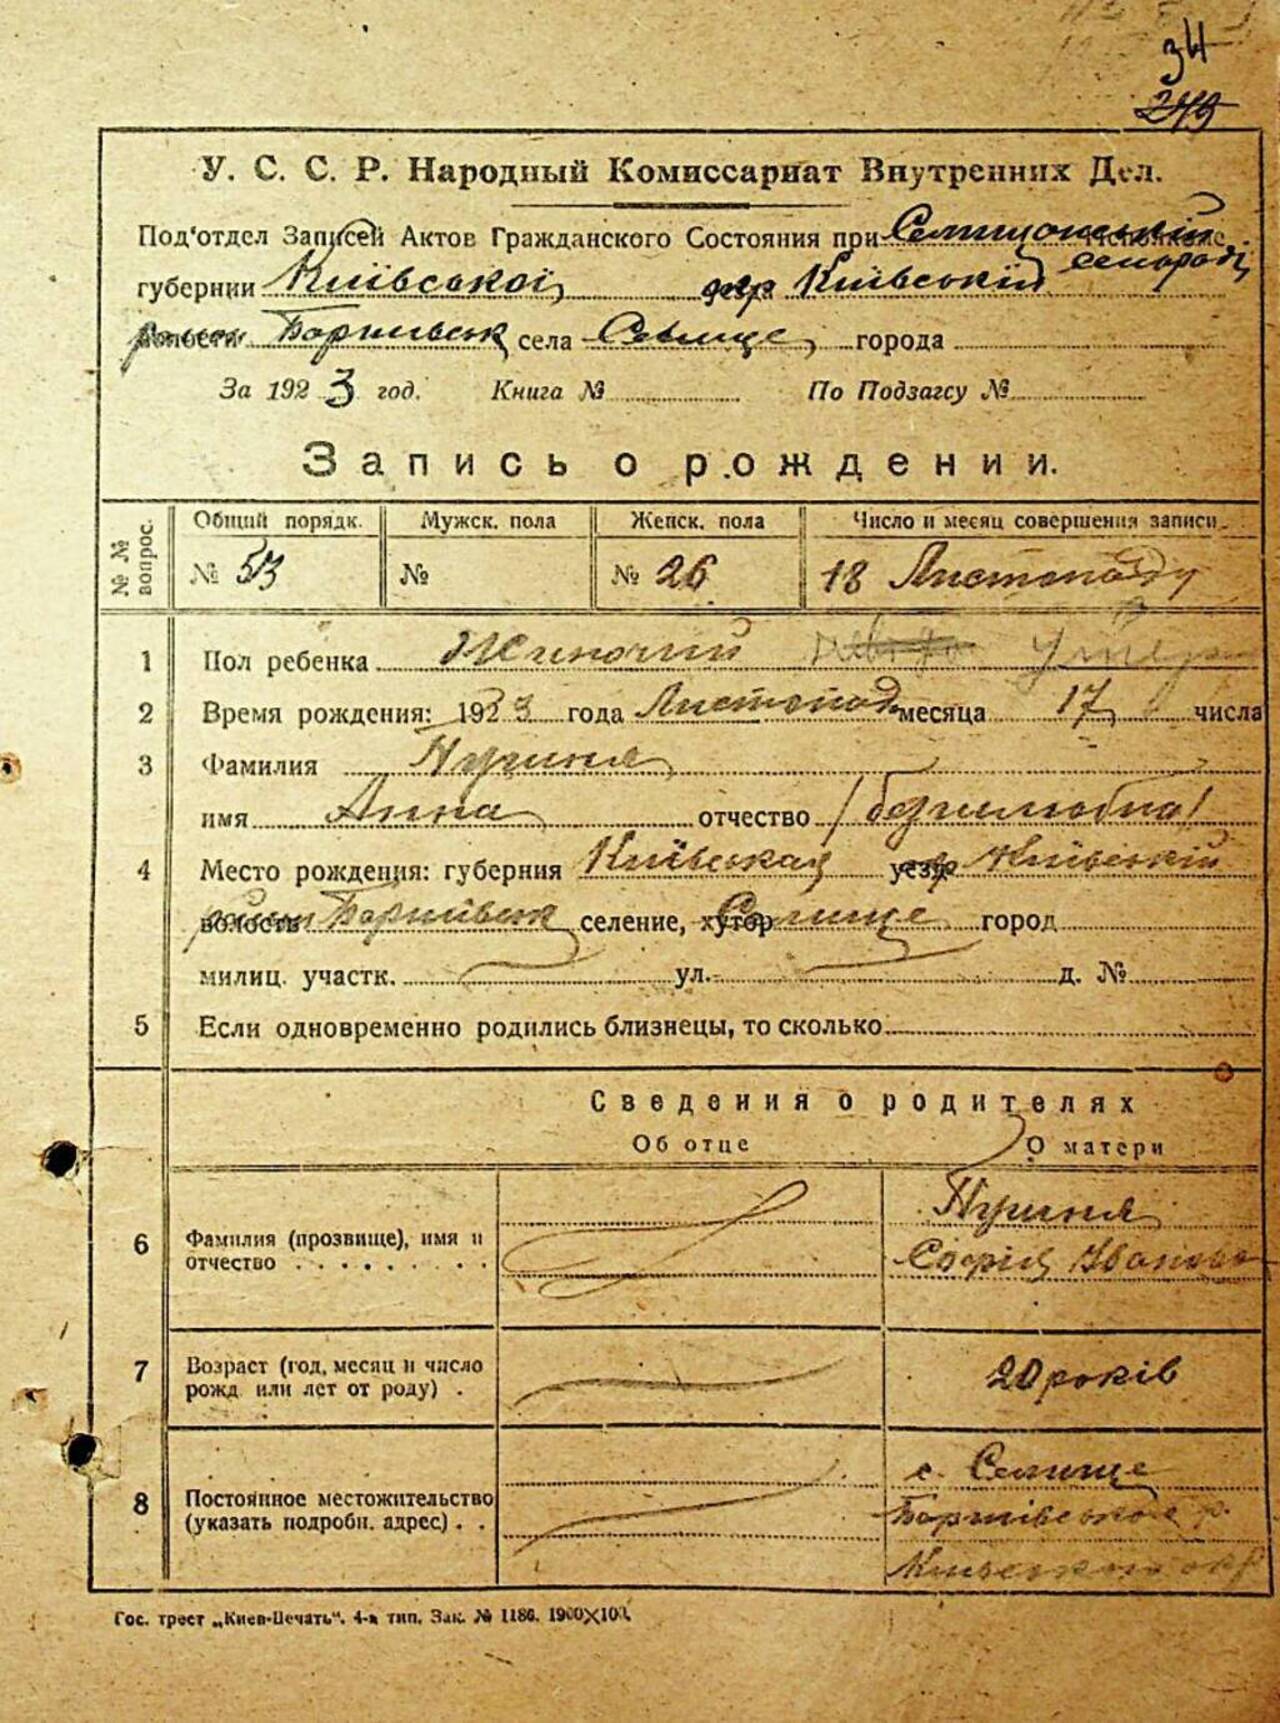 34
249
У. С. С. Р. Народный Комиссариат Внутренних Дел.
Под'отдел Записей Актов Гражданского Состояния при Селищанській сельраді
губернии Київської окр Київській
волости села Селище города
За 1923 год. Книга № По Подзагсу №
Запись о рождении.
№ № вопрос. Общий порядк. Мужск. пола Женск. пола Число и месяц совершения записи
№ 53 № № 26 18 Листопаду
1 Пол ребенка Жиночий
2 Время рождения: 1923 года Листопад месяца 17 числа
3 Фамилия
имя Анна отчество
4 Место рождения: губерния Київська уезд Київській
волость селение, хутор Селище город
милиц. участк. ул. д. №
5 Если одновременно родились близнецы, то сколько
Сведения о родителях
Об отце О матери
6 Фамилия (прозвище), имя и
отчество
Софія Іванова
7 Возраст (год, месяц и число
рожд или лет от роду) . 20 років
8 Постоянное местожительство
(указать подробн. адрес) . .
с. Селище
Київської окр
Гос. трест „Киев-Печать". 4-я тип. Зак. № 1186. 1900×100.